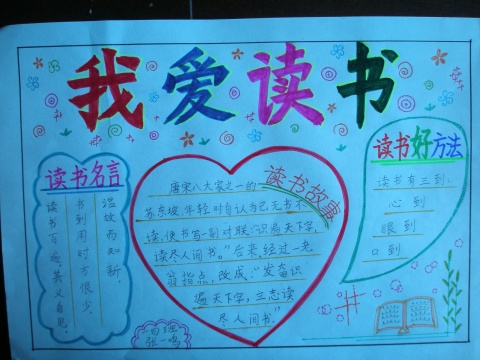 我爱读书
读书名言
温故而知新，
书到用时方恨少，
读书百遍，其义自见。
读书故事
唐宋八大家之一的
苏东坡，年轻时自认为已无书不
读，便书写一副对联："识遍天下字，
读尽人间书。"后来，经过一老
翁指点，改成，"发奋识
遍天下字，立志读
尽人间书。"
读书好方法
读书有三到：
心到
眼到
口到
张一鸣